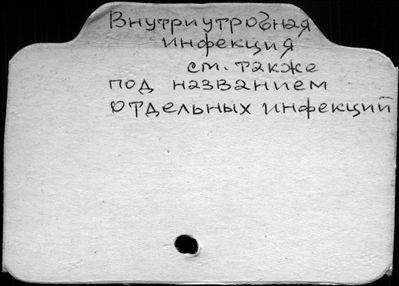 Внутриутробная
инфекция
см. также
под названием
отдельных инфекций